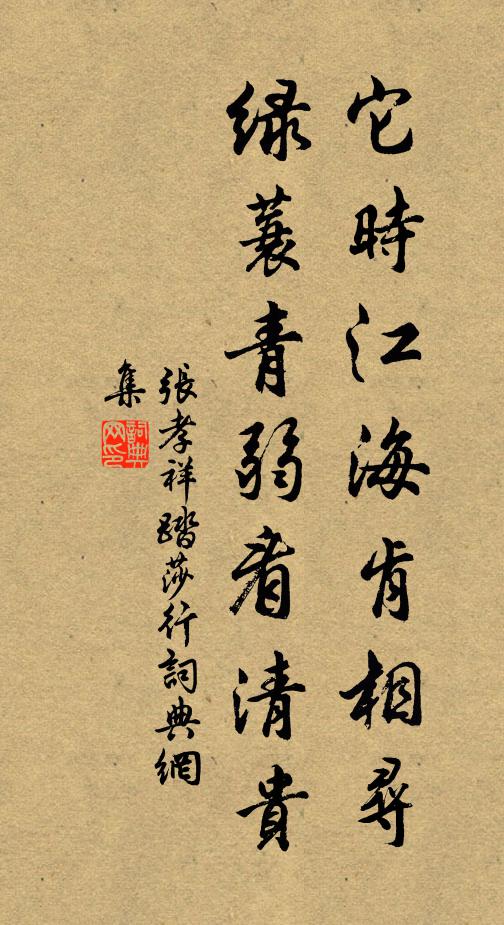 它時江海肯相尋
綠蓑青蒻看清貴
張孝祥踏莎行詞典網
集
詞典網印